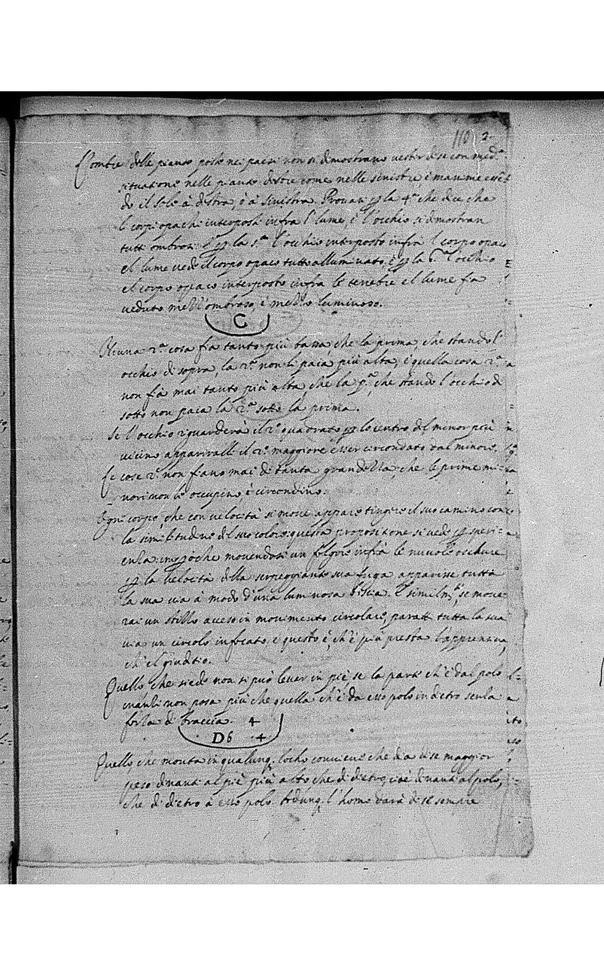 110 2
L'ombre delle piante poste ne i paesi non si dimostrano vestir di se con med.ᵃ
situatione nelle piante destre come nelle sinistre e mass.me essẽ
do il sole à destra, ò à sinistra. Provasi ꝑ la 4ᵃ che dice che
li corpi opachi interposti infra l lume, e l'occhio si dimostran
tutti ombrosi e ꝑ la 5ᵃ l'occhio interposto infra l corpo opaco
el lume vede il corpo opaco tutto alluminato, e ꝑ la 6ᵃ l'occhio
el corpo opaco interposto infra le tenebre el lume fia
veduto mezzo ombroso, e mezzo luminoso.
C
Alcuna 2ᵃ cosa fia tanto più bassa che la prima, che stando l'
occhio di sopra, la 2ᵃ non li paia più alta, e quella cosa 2ᵃ
non fia mai tanto più alta che la pᵃ, che stando l'occhio di
sotto non paia la 2ᵃ sotto la prima.
Se l'occhio riguarderà il 2º quadrato ꝑ lo centro del minor più
vicino appariralli il 2º maggiore esser circondato dal minore.
Le cose 2ᵉ non fiano mai di tanta grandezza che le prime mi-
nori non le occupino, e circondino.
Ogni corpo, che con velocità si move appare tingere il suo camino con
la similitudine del suo colore: questa propositione si vede ꝑ speri-
enza: impoche movendosi un folgore infra le nuvole oschure
ꝑ la velocità della serpeggiante sua fuga apparisse tutta
la sua via à modo d'una luminosa biscia. E similmᵗᵉ, se move-
rai un stillo acceso in movimento circolare, paratti tutta la sua
via un circolo infocato, e questo è, ch'è più presta l'apprensiva,
ch'el giuditio.
Quello che siede non si può lever in piè, se la parte ch'è dal polo
inanzi non posa più che quella ch'è da esso polo in dietro senza
forza di braccia. 4
D6 . 4
Quello che monta in qualunq. locho conviene che dia di se maggior
peso dinanti al piè più alto che di dietro, cioè dinanti al polo,
che di dietro à esso polo. Adunq. l'homo darà di se sempre